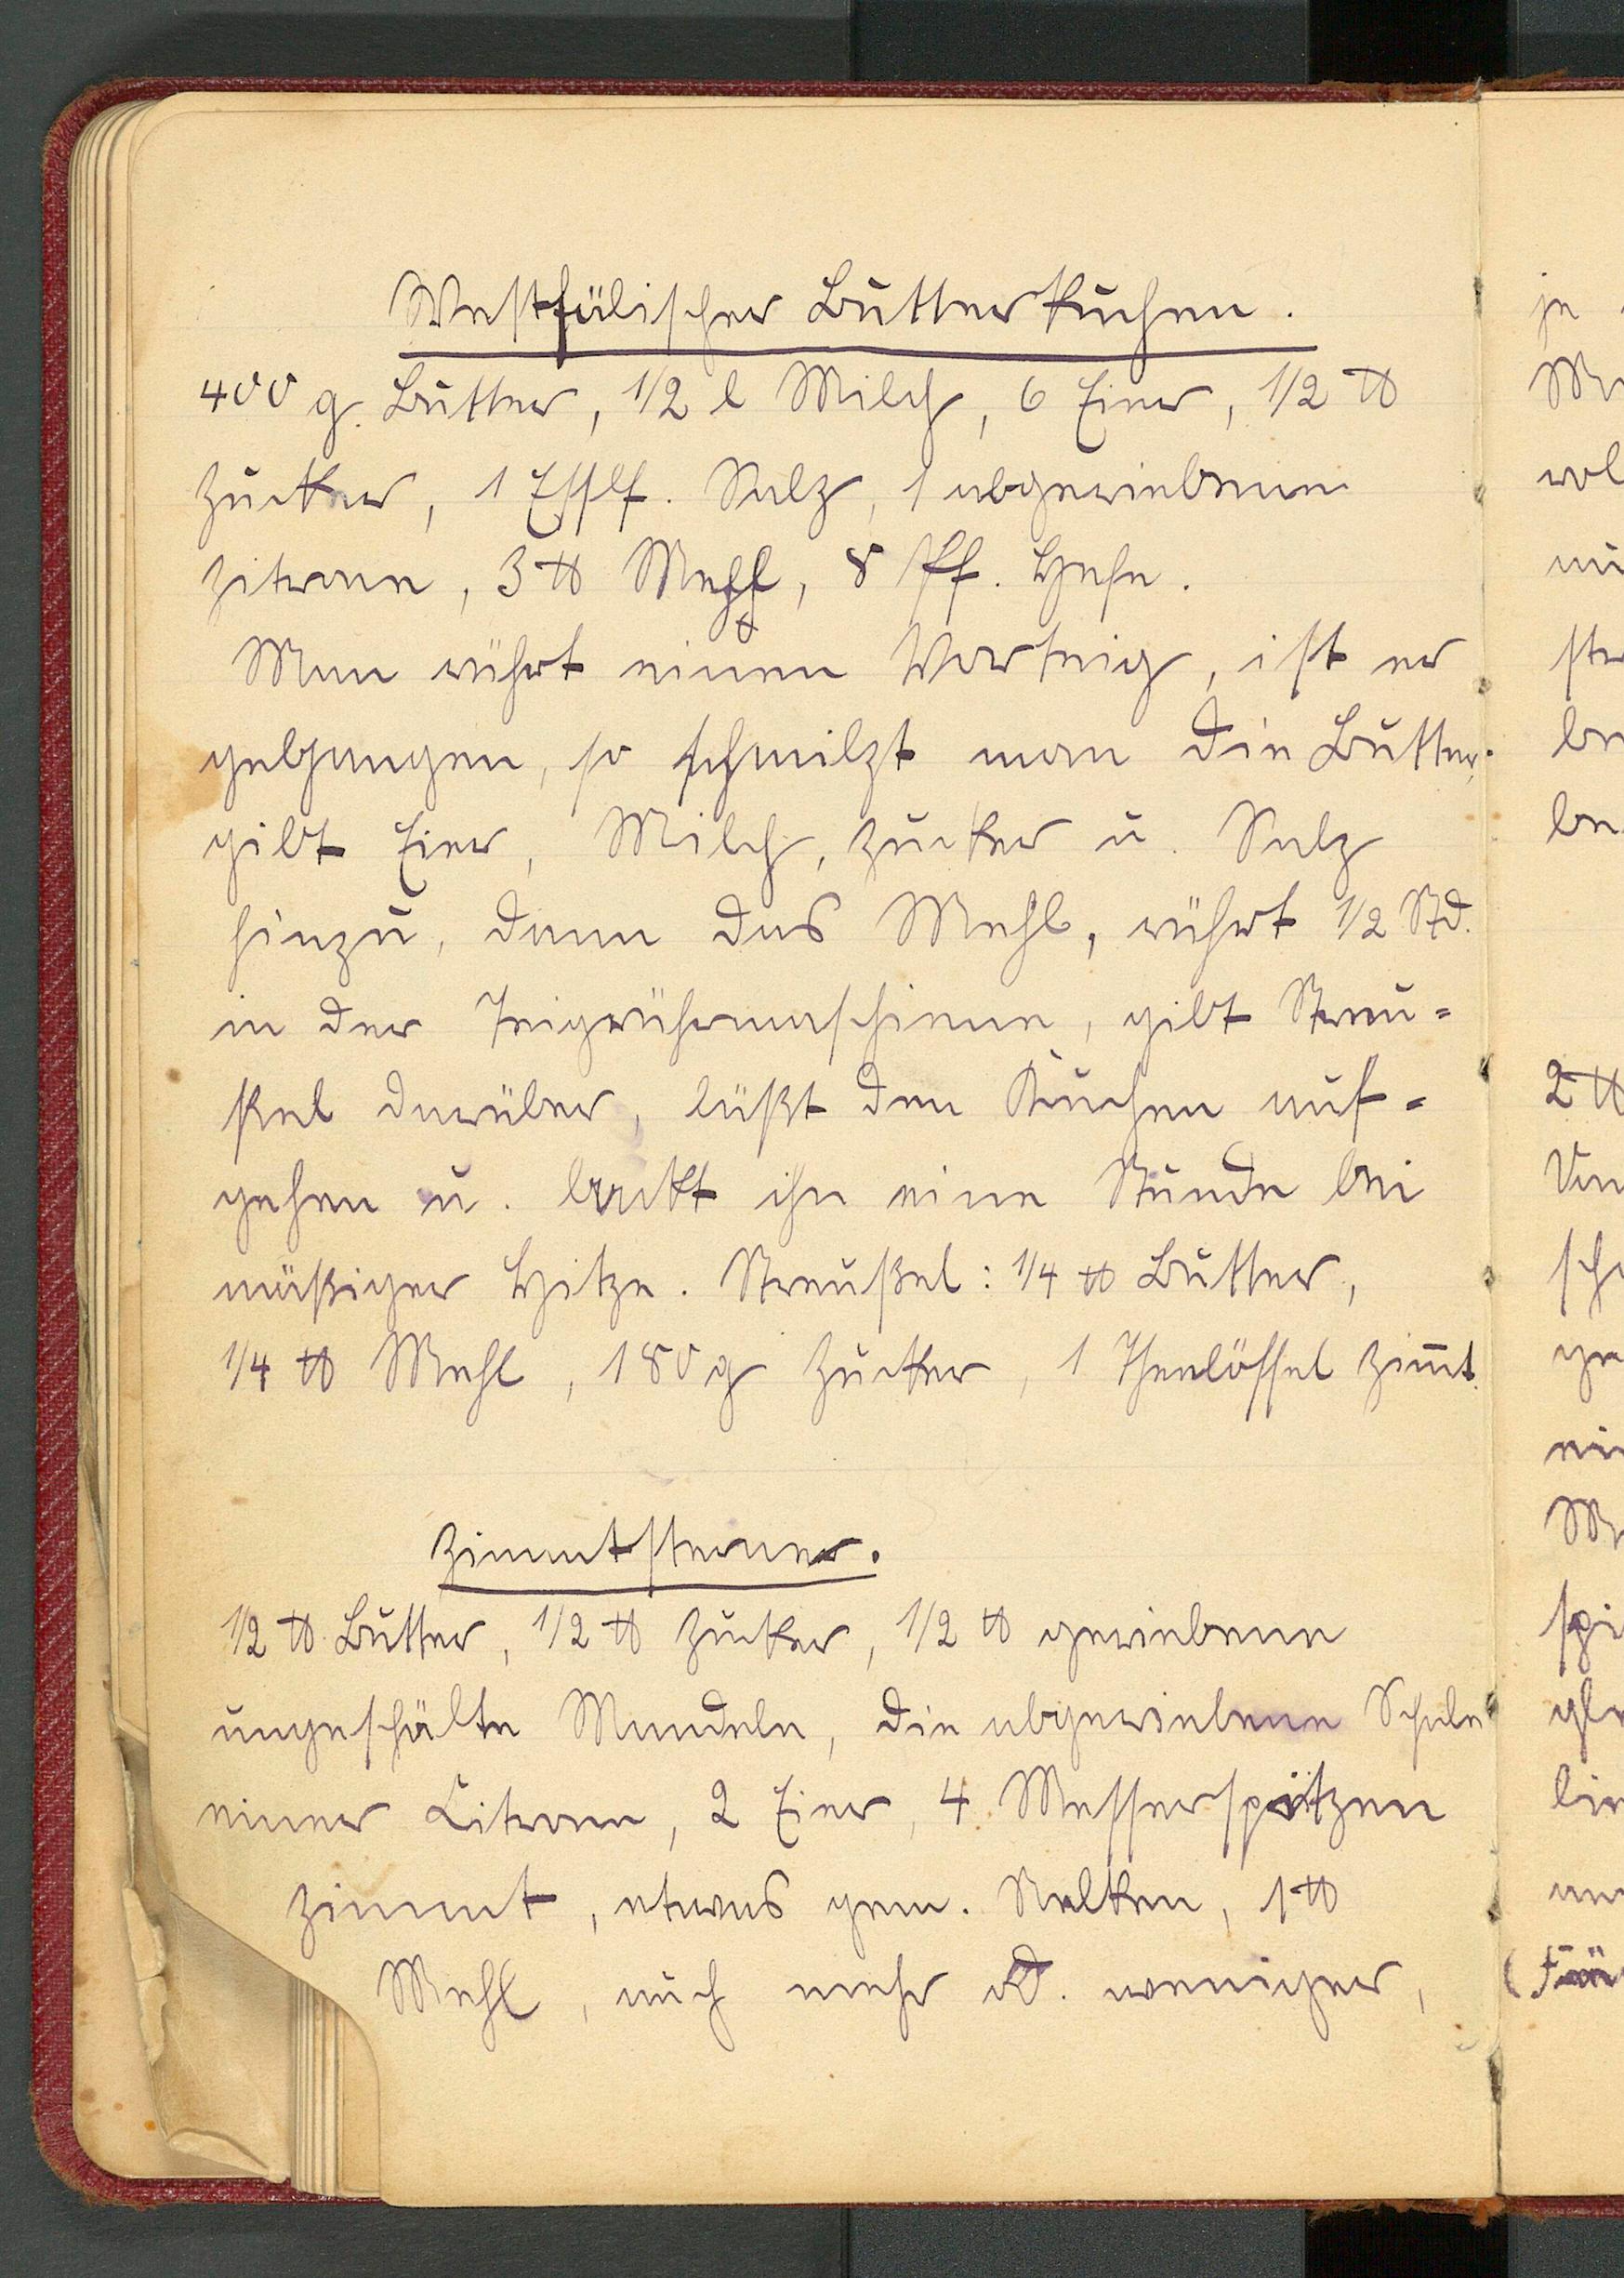 Westfälischer Butterkuchen.
400 g. Butter, 1/2 l Milch, 6 Eier, 1/2 ℔
Zucker, 1 Essl. Salz, 1 abgeriebene
Zitrone, 3 ℔ Mehl, 8 Pf. Hefe.
Man rührt einen Vorteig, ist er
gegangen, so schmilzt man die Butter,
gibt Eier, Milch, Zucker u. Salz
hinzu, dann das Mehl, rührt 1/2 Std.
in der Teigrührmaschiene, gibt Streu=
ßel darüber, läßt den Kuchen auf=
gehen u. backt ihn eine Stunde bei
mäßiger Hitze. Streußel: 1/4 ℔ Butter,
1/4 ℔ Mehl, 180 g Zucker, 1 Theelöffel Zimt.
Zimmtsterne.
1/2 ℔ Butter, 1/2 ℔ Zucker, 1/2 ℔ geriebene
ungeschälte Mandeln, die abgeriebene Schale
einer Citrone, 2 Eier, 4 Messerspitzen
Zimmt, etwas gem. Nelken, 1 ℔
Mehl, auch mehr od. weniger,